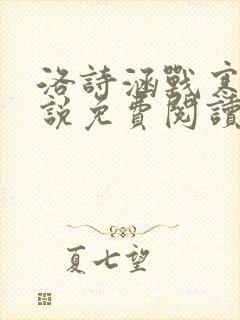 洛詩涵戰寒
說免費閱讀
夏七望